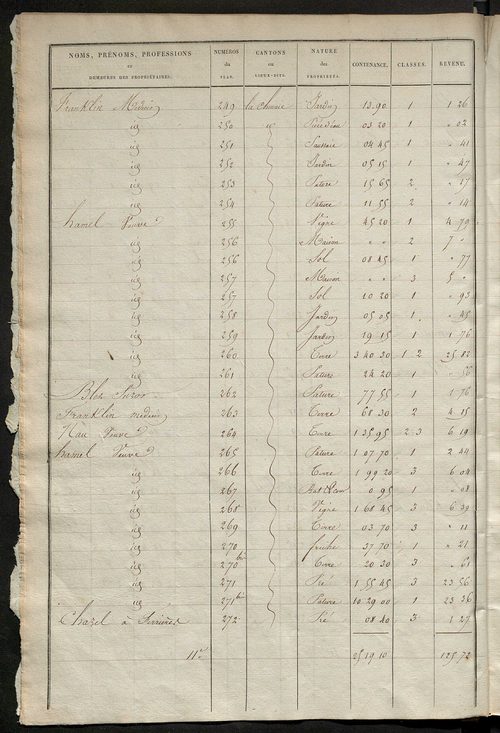 NOMS, PRÉNOMS, PROFESSIONS ET DEMEURES DES PROPRIÉTAIRES. NUMÉROS du PLAN. CANTONS ou LIEUX-DITS. NATURE des PROPRIÉTÉS. CONTENANCE. CLASSES. REVENU.
Franklin 249 Jardin 13.90 1 1 26
id 250 id 03 20 1 " 02
id 251 04 45 1 " 41
id 252 Jardin 05 15 1 " 47
id 253 Pature 15 65 2 " 17
id 254 Pature 11 55 2 " 14
hamel Veuve 255 Vigne 45 20 1 4 79
id 256 Maison " " 2 7 "
id 256 Sol 08 45 1 " 77
id 257 Maison " " 3 5 "
id 257 Sol 10 20 1 " 93
id 258 Jardin 05 05 1 " 45
id 259 Jardin 19 15 1 1 76
id 260 Terre 3 40 30 1 2 25 82
id 261 Pature 24 20 1 " 56
262 Pature 77 55 1 1 76
Franklin 263 Terre 68 30 2 4 15
Nau Veuve 264 Terre 1 35 95 2 3 6 19
hamel Veuve 265 Pature 1 07 70 1 2 44
id 266 Terre 1 99 20 3 6 04
id 267 0 95 1 " 08
id 268 Vigne 1 68 45 3 6 39
id 269 Terre 03 70 3 " 11
id 270 friche 37 70 1 " 21
id 270 bis Terre 20 30 3 " 61
id 271 Pré 1 55 45 3 23 56
id 271 bis Pature 10 29 00 1 23 36
Chazel à 272 Pré 08 40 3 1 27
25 19 10 125 72